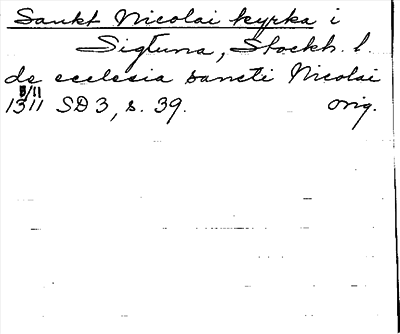 Sankt Nicolai kyrka i
Sigtuna, Stockh. l.
de ecclesia sancti Nicolai
1311 5/11 SD 3, s. 39. orig.